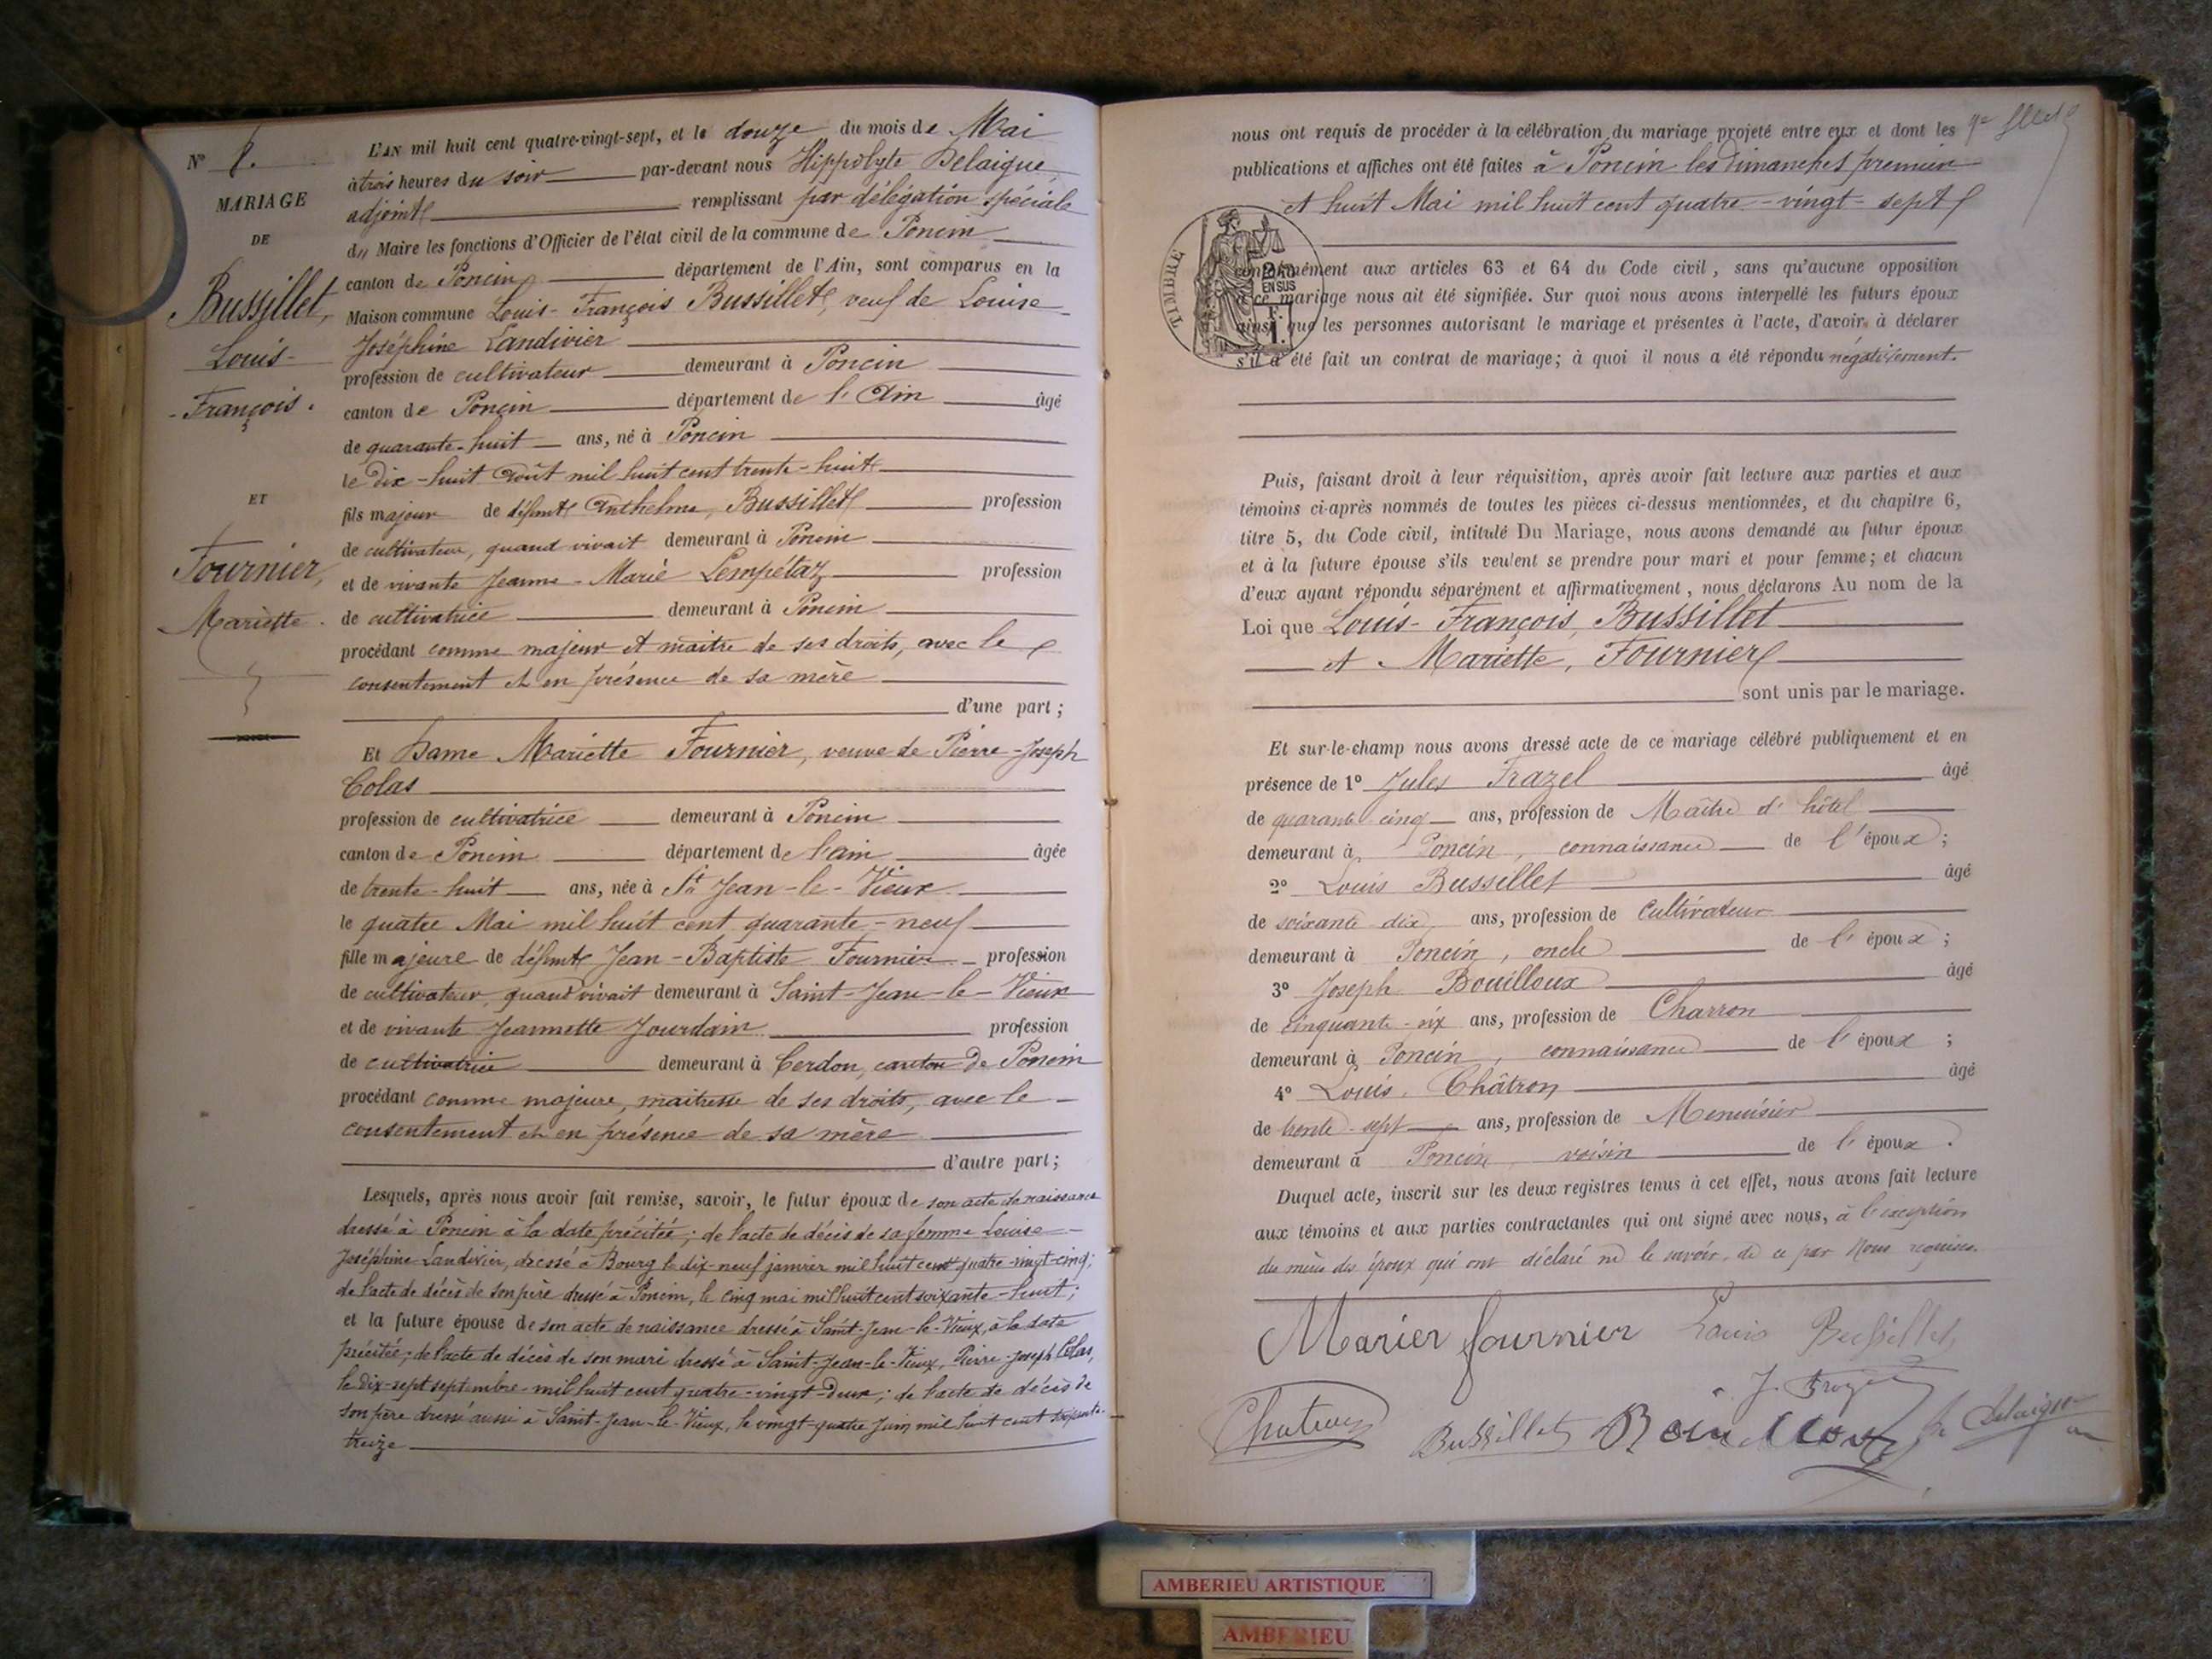 N° 8.
MARIAGE
DE
Bussillet,
Louis-
-François.
ET
Fournier,
Mariette.
L'AN mil huit cent quatre-vingt-sept, et le douze du mois de Mai
à trois heures du soir par-devant nous Hippolyte Delaigue,
adjoint remplissant par délégation spéciale
du Maire les fonctions d'Officier de l'état civil de la commune de Poncin
canton de Poncin département de l'Ain, sont comparus en la
Maison commune Louis-François Bussillet, veuf de Louise
Joséphine Landivier
profession de cultivateur demeurant à Poncin
canton de Poncin département de l'Ain âgé
de quarante-huit ans, né à Poncin
le dix-huit Août mil huit cent trente-huit
fils majeur de défunt Anthelme, Bussillet profession
de cultivateur, quand vivait demeurant à Poncin
et de vivante Jeanne-Marie Lempétaz profession
de cultivatrice demeurant à Poncin
procédant comme majeur et maitre de ses droits, avec le
consentement et en présence de sa mère
d'une part;
Et Dame Mariette Fournier, veuve de Pierre-Joseph
Colas
profession de cultivatrice demeurant à Poncin
canton de Poncin département de l'ain âgée
de trente-huit ans, née à St Jean-le-Vieux
le quatre Mai mil huit cent quarante-neuf
fille majeure de défunt Jean-Baptiste Fournier profession
de cultivateur, quand vivait demeurant à Saint-Jean-le-Vieux
et de vivante Jeannette Jourdain profession
de cultivatrice demeurant à Cerdon, canton de Poncin
procédant comme majeure, maitresse de ses droits, avec le
consentement et en présence de sa mère
d'autre part;
Lesquels, après nous avoir fait remise, savoir, le futur époux de son acte de naissance
dressé à Poncin à la date précitée; de l'acte de décès de sa femme Louise-
Joséphine Landivier, dressé à Bourg le dix-neuf janvier mil huit cent quatre-vingt-cinq;
de l'acte de décès de son père dressé à Poncin, le cinq mai mil huit cent soixante-huit;
et la future épouse de son acte de naissance dressé à Saint-Jean-le-Vieux, à la date
précitée; de l'acte de décès de son mari dressé à Saint-Jean-le-Vieux, Pierre-Joseph Colas,
le dix-sept septembre mil huit cent quatre-vingt-deux; de l'acte de décès de
son père dressé aussi à Saint-Jean-le-Vieux, le vingt-quatre Juin mil huit cent soixante-
treize
nous ont requis de procéder à la célébration du mariage projeté entre eux et dont les
publications et affiches ont été faites à Poncin les dimanches premier
et huit Mai mil huit cent quatre-vingt-sept
TIMBRE
2/10
EN SUS
F.
1.
conformément aux articles 63 et 64 du Code civil, sans qu'aucune opposition
à ce mariage nous ait été signifiée. Sur quoi nous avons interpellé les futurs époux
ainsi que les personnes autorisant le mariage et présentes à l'acte, d'avoir à déclarer
s'il a été fait un contrat de mariage; à quoi il nous a été répondu négativement.
Puis, faisant droit à leur réquisition, après avoir fait lecture aux parties et aux
témoins ci-après nommés de toutes les pièces ci-dessus mentionnées, et du chapitre 6,
titre 5, du Code civil, intitulé Du Mariage, nous avons demandé au futur époux
et à la future épouse s'ils veulent se prendre pour mari et pour femme; et chacun
d'eux ayant répondu séparément et affirmativement, nous déclarons Au nom de la
Loi que Louis-François, Bussillet
et Mariette, Fournier
sont unis par le mariage.
Et sur-le-champ nous avons dressé acte de ce mariage célébré publiquement et en
présence de 1° Jules Frazel âgé
de quarante cinq ans, profession de Maître d'hôtel
demeurant à Poncin, connaissance de l'époux;
2° Louis Bussillet âgé
de soixante dix ans, profession de Cultivateur
demeurant à Poncin, oncle de l'époux;
3° Joseph Bouilloux âgé
de cinquante-six ans, profession de Charron
demeurant à Poncin, connaissance de l'époux;
4° Louis, Châtron âgé
de trente-sept ans, profession de Menuisier
demeurant à Poncin, voisin de l'époux.
Duquel acte, inscrit sur les deux registres tenus à cet effet, nous avons fait lecture
aux témoins et aux parties contractantes qui ont signé avec nous, à l'exception
des mères des époux qui ont déclaré ne le savoir, de ce par Nous requises.
Marier fournier Louis Bussillet
Bussillet Bouilloux Delaigue
AMBERIEU ARTISTIQUE
AMBERIEU